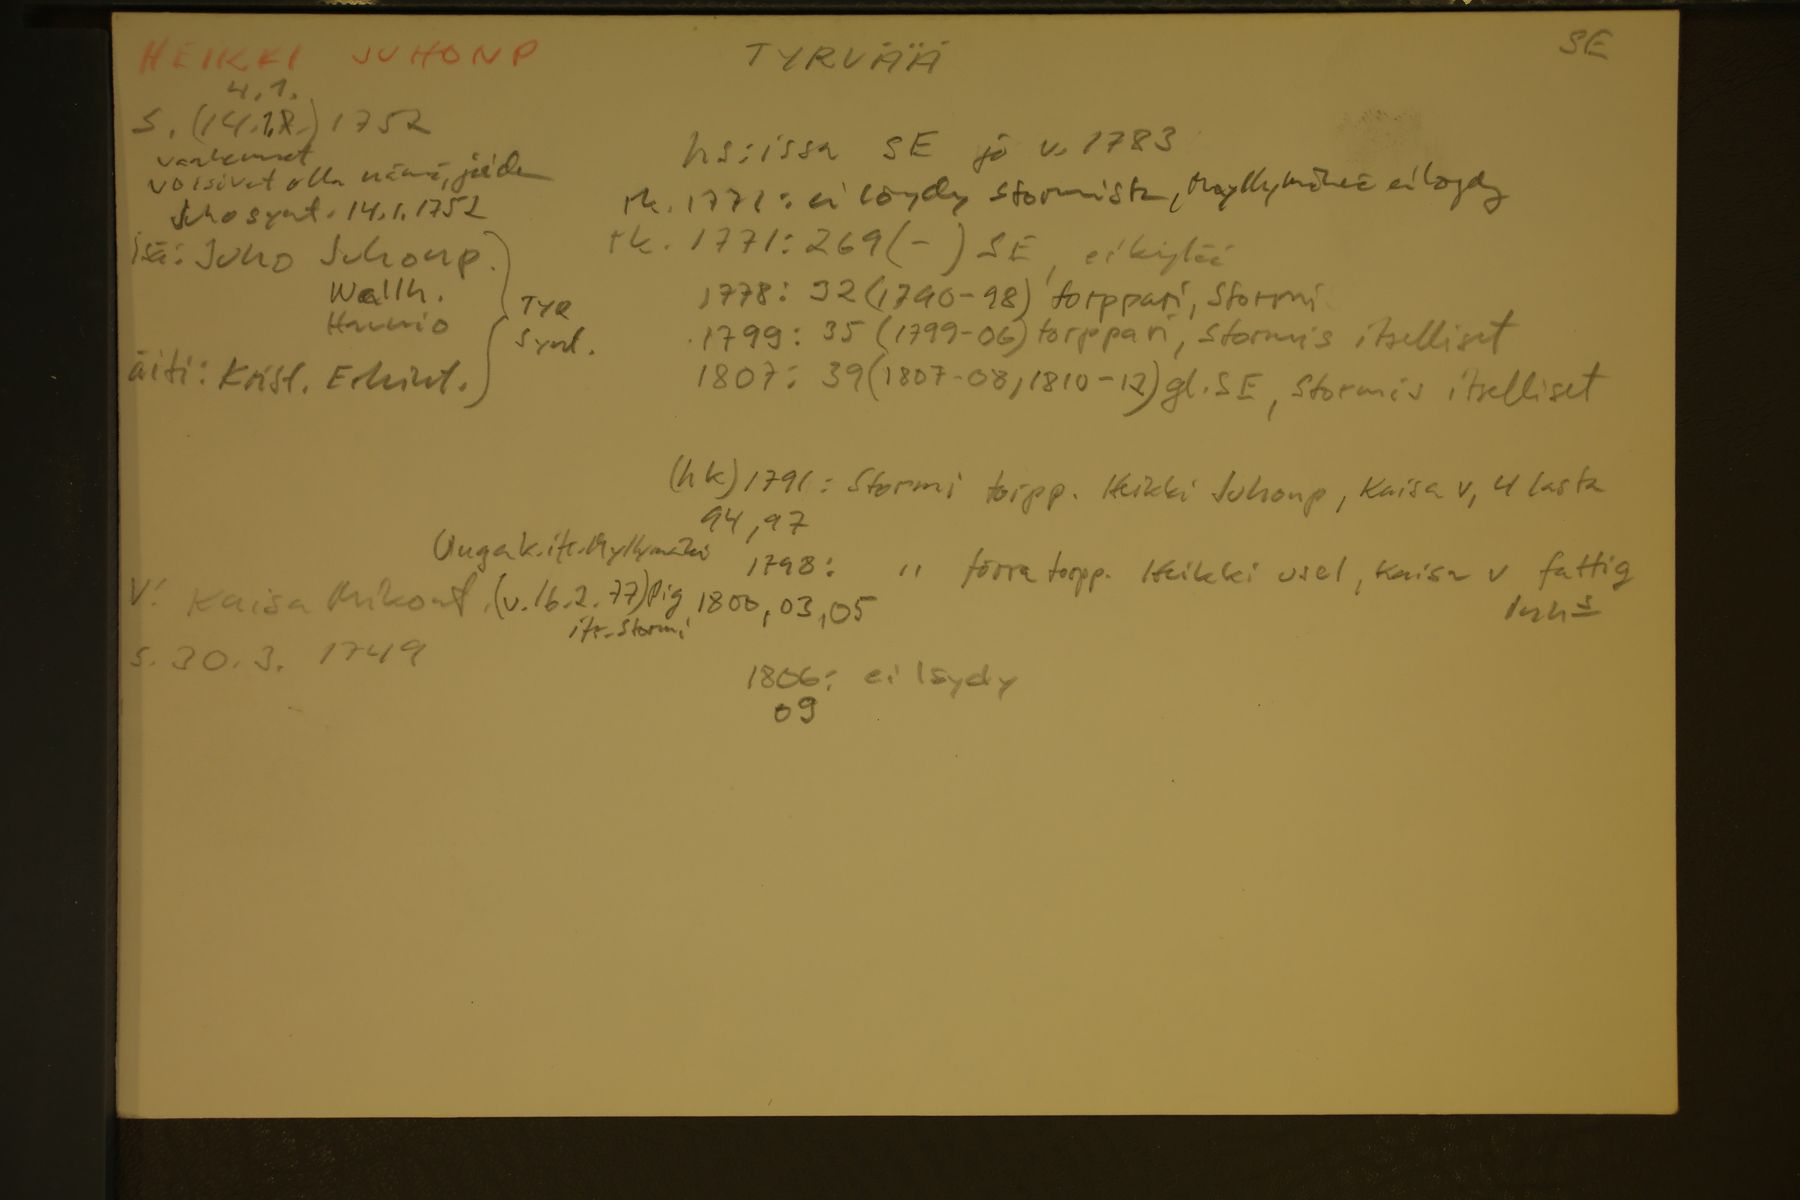 HEIKKI JUHONP
TYRVÄÄ
SE
4.1.
s. (14.1.) 1752
vanhemmat
voisivat olla nämä, joiden
Juho synt. 14.1.1752
isä: Juho Juhonp.
Wallh.
Hannio
äiti: Krist. Erkint.
TYR
synt.
hs:issa SE jo v. 1783
rk. 1771: ei löydy Stormista, Myllymäkeä ei löydy
rk. 1771: 269(-) SE, ei
1778: 32 (1790-98) torppari, Stormi
1799: 35 (1799-06) torppari, Stormis itselliset
1807: 39 (1807-08, 1810-12) gl. SE, Stormis itselliset
(hk) 1791: Stormi torpp. Heikki Juhonp, Kaisa v, 4 lasta
94, 97
1798: " förra torpp. Heikki usel, Kaisa v fattig
inhs
1800, 03, 05
Unga k. itt. Myllymäki
V: Kaisa Mikont. (v. 16.2.77) Pig
itt. Stormi
s. 30.3. 1749
1806: ei löydy
09